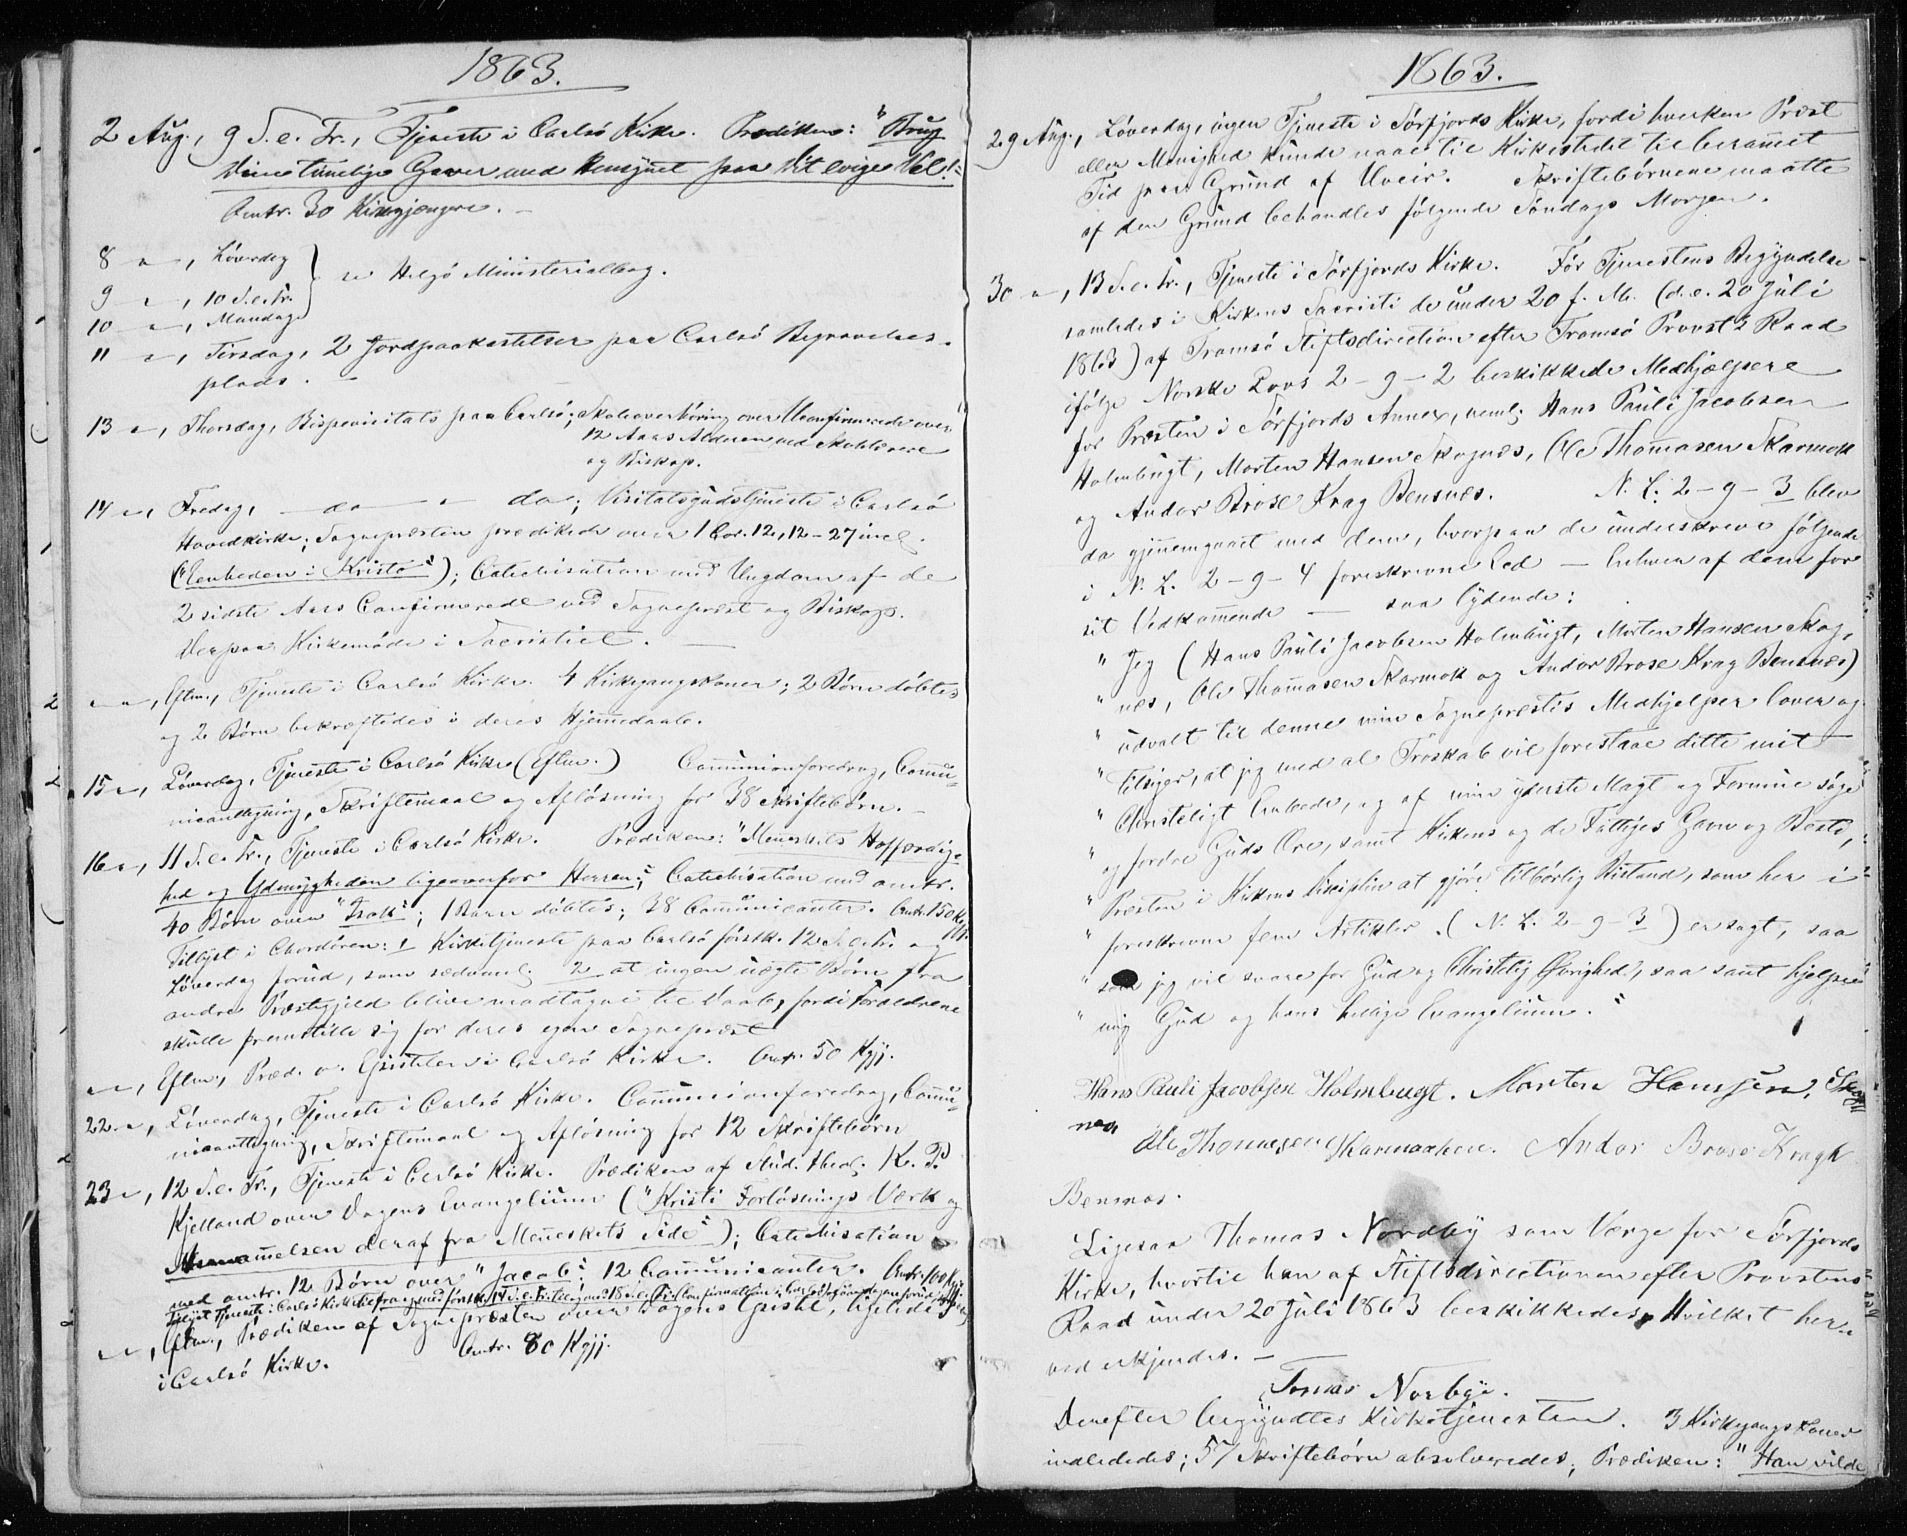 1863.
2 Aug., 9 S. e. Tr., Tjeneste i Carlsö Kirke. Prædiken: "Brug
Dine timelige Gaver med Hensynet paa Dit evige Vel!"
Omtr. 30 Kirkgjængere. -
8 " -, Löverdag
9 " -, 10 S. e. Tr. } se Helgö Ministerialbog.
10 " -, Mandag
11 " -, Tirsdag, 2 Jordpaakastelser paa Carlsö Begravelses-
plads. -
13 " -, Thorsdag, Bispevisitats paa Carlsö; Skoleoverhöring over Uconfirmerede over
12 Aars Alderen ved Skolelærere
og Biskop.
14 " -, Fredag, - do - " - do; Visitatsgudstjeneste i Carlsö
Hovedkirke; Sognepræsten prædikede over 1 Cor. 12, 12-27 incl.
("Eenheden i Kristo"); Catechisation med Ungdom af de
2 sidste Aars Confirmerede ved Sognepræst og Biskop.
Derpaa Kirkemöde i Sacristiet. -
" - ", Eftm., Tjeneste i Carlsö Kirke. 4 Kirkegangskoner; 2 Börn döbtes
og 2 Börn bekræftedes i deres Hjemmedaab.
15 " -, Löverdag, Tjeneste i Carlsö Kirke (Eftm.) Communionforedrag, Commu-
nicantlegning, Skriftemaal og Aflösning for 38 Skriftebörn. -
16 " -, 11 S. e. Tr., Tjeneste i Carlsö Kirke. Prædiken: "Menneskets Hoffærdig-
hed og Ydmygheden ligeoverfor Herren"; Catechisation med omtr.
40 Börn over "Isak"; 1 Barn döbtes; 38 Communicanter. Omtr. 150 Kgjj.
Tillyst i Chordören: 1 Kirketjeneste paa Carlsö förstk. 12 S. e. Tr. og
Löverdag forud, som sædvanl. 2 at ingen uægte Börn fra
andre Præstegjeld blive modtagne til Daab, fordi Forældrene
skulle fremstille sig for deres egen Sognepræst
" - ", Eftm., Præd. o. Epistelen i Carlsö Kirke. Omtr. 50 Kgjj.
22 " -, Löverdag, Tjeneste i Carlsö Kirke. Communionforedrag, Commu-
nicantlegning, Skriftemaal og Aflösning for 12 Skriftebörn
23 " -, 12 S. e. Tr., Tjeneste i Carlsö Kirke. Prædiken af Stud. theol. K. P.
Kjelland over Dagens Evangelium ("Kristi Forlösnings Værk og
Anammelsen deraf fra Menneskets Side"); Catechisation
med omtr. 12 Börn over "Jacob". 12 Communicanter. Omtr. 100 Kgjj.
Tillyst Tjeneste i Carlsö Kirke
" - ", Eftm., Prædiken af Sognepræsten over Dagens Epistel, ligeledes
i Carlsö Kirke. Omtr. 80 Kgjj.
1863.
29 Aug., Löverdag, ingen Tjeneste i Sörfjords Kirke, fordi hverken Præst
eller Menighed kunde naae til Kirkestedet til berammet
Tid paa Grund af Uveir. Skriftebörnene maatte
af den Grund behandles fölgende Söndags Morgen.
30 " -, 13 S. e. Tr., Tjeneste i Sörfjords Kirke. För Tjenestens Begyndelse
samledes i Kirkens Sacristi de under 20 f. M. (d.e. 20 Juli
1863) af Tromsö Stiftsdirection efter Tromsö Provsts Raad
ifölge Norske Lovs 2-9-2 beskikkede Medhjælpere
for Præsten i Sörfjords Annex, neml. Hans Pauli Jacobsen
Holmbugt, Morten Hansen Skognæs, Ole Thomasen Skarmok
og Andor Brose Krag Bensnæs. N. L. 2-9-3 blev
da gjennemgaaet med dem, hvorpaa de underskreve fölgende
i N. L. 2-9-4 foreskrevne Eed - Enhver af dem for
sit Vedkommende - saa lydende:
" Jeg (Hans Pauli Jacobsen Holmbugt, Morten Hansen Skog-
" næs, Ole Thomasen Skarmok og Andor Brose Krag Bensnæs)
" udvalt til denne min Sognepræstis Medhjelper lover og
" tilsiger, at jeg med al Troskab vil forestaae dette mit
" Christeligt Embede, og af min yderste Magt og Formue söge
" og fordre Guds Ære, samt Kirkens og de Fattiges Gavn og Beste,
" Præsten i Kirkens Disciplin at gjöre tilbörlig Bistand, som her i
" foreskrevne fem Artikler (N. L. 2-9-3) er sagt, saa
" som jeg vil svare for Gud og Christelig Övrighed, saa sant hjelpe
" mig Gud og hans hellige Evangelium."
Hans Pauli Jacobsen Holmbugt. Morten Hanssen, Skog
næs
Ole Thomesen Skarmoxhen. Andor Brose Kragh
Bensnæs.
Ligesaa Thomas Nordby som Værge for Sörfjords
Kirke, hvortil han af Stiftsdirectionen efter Provstens
Raad under 20 Juli 1863 beskikkedes, Hvilket her-
ved erkjendes. -
Tomas Norbye.
Derefter begyndtes Kirketjenesten. 3 Kirkegangskoner
indlededes; 57 Skriftebörn absolveredes; Prædiken: "Han vilde